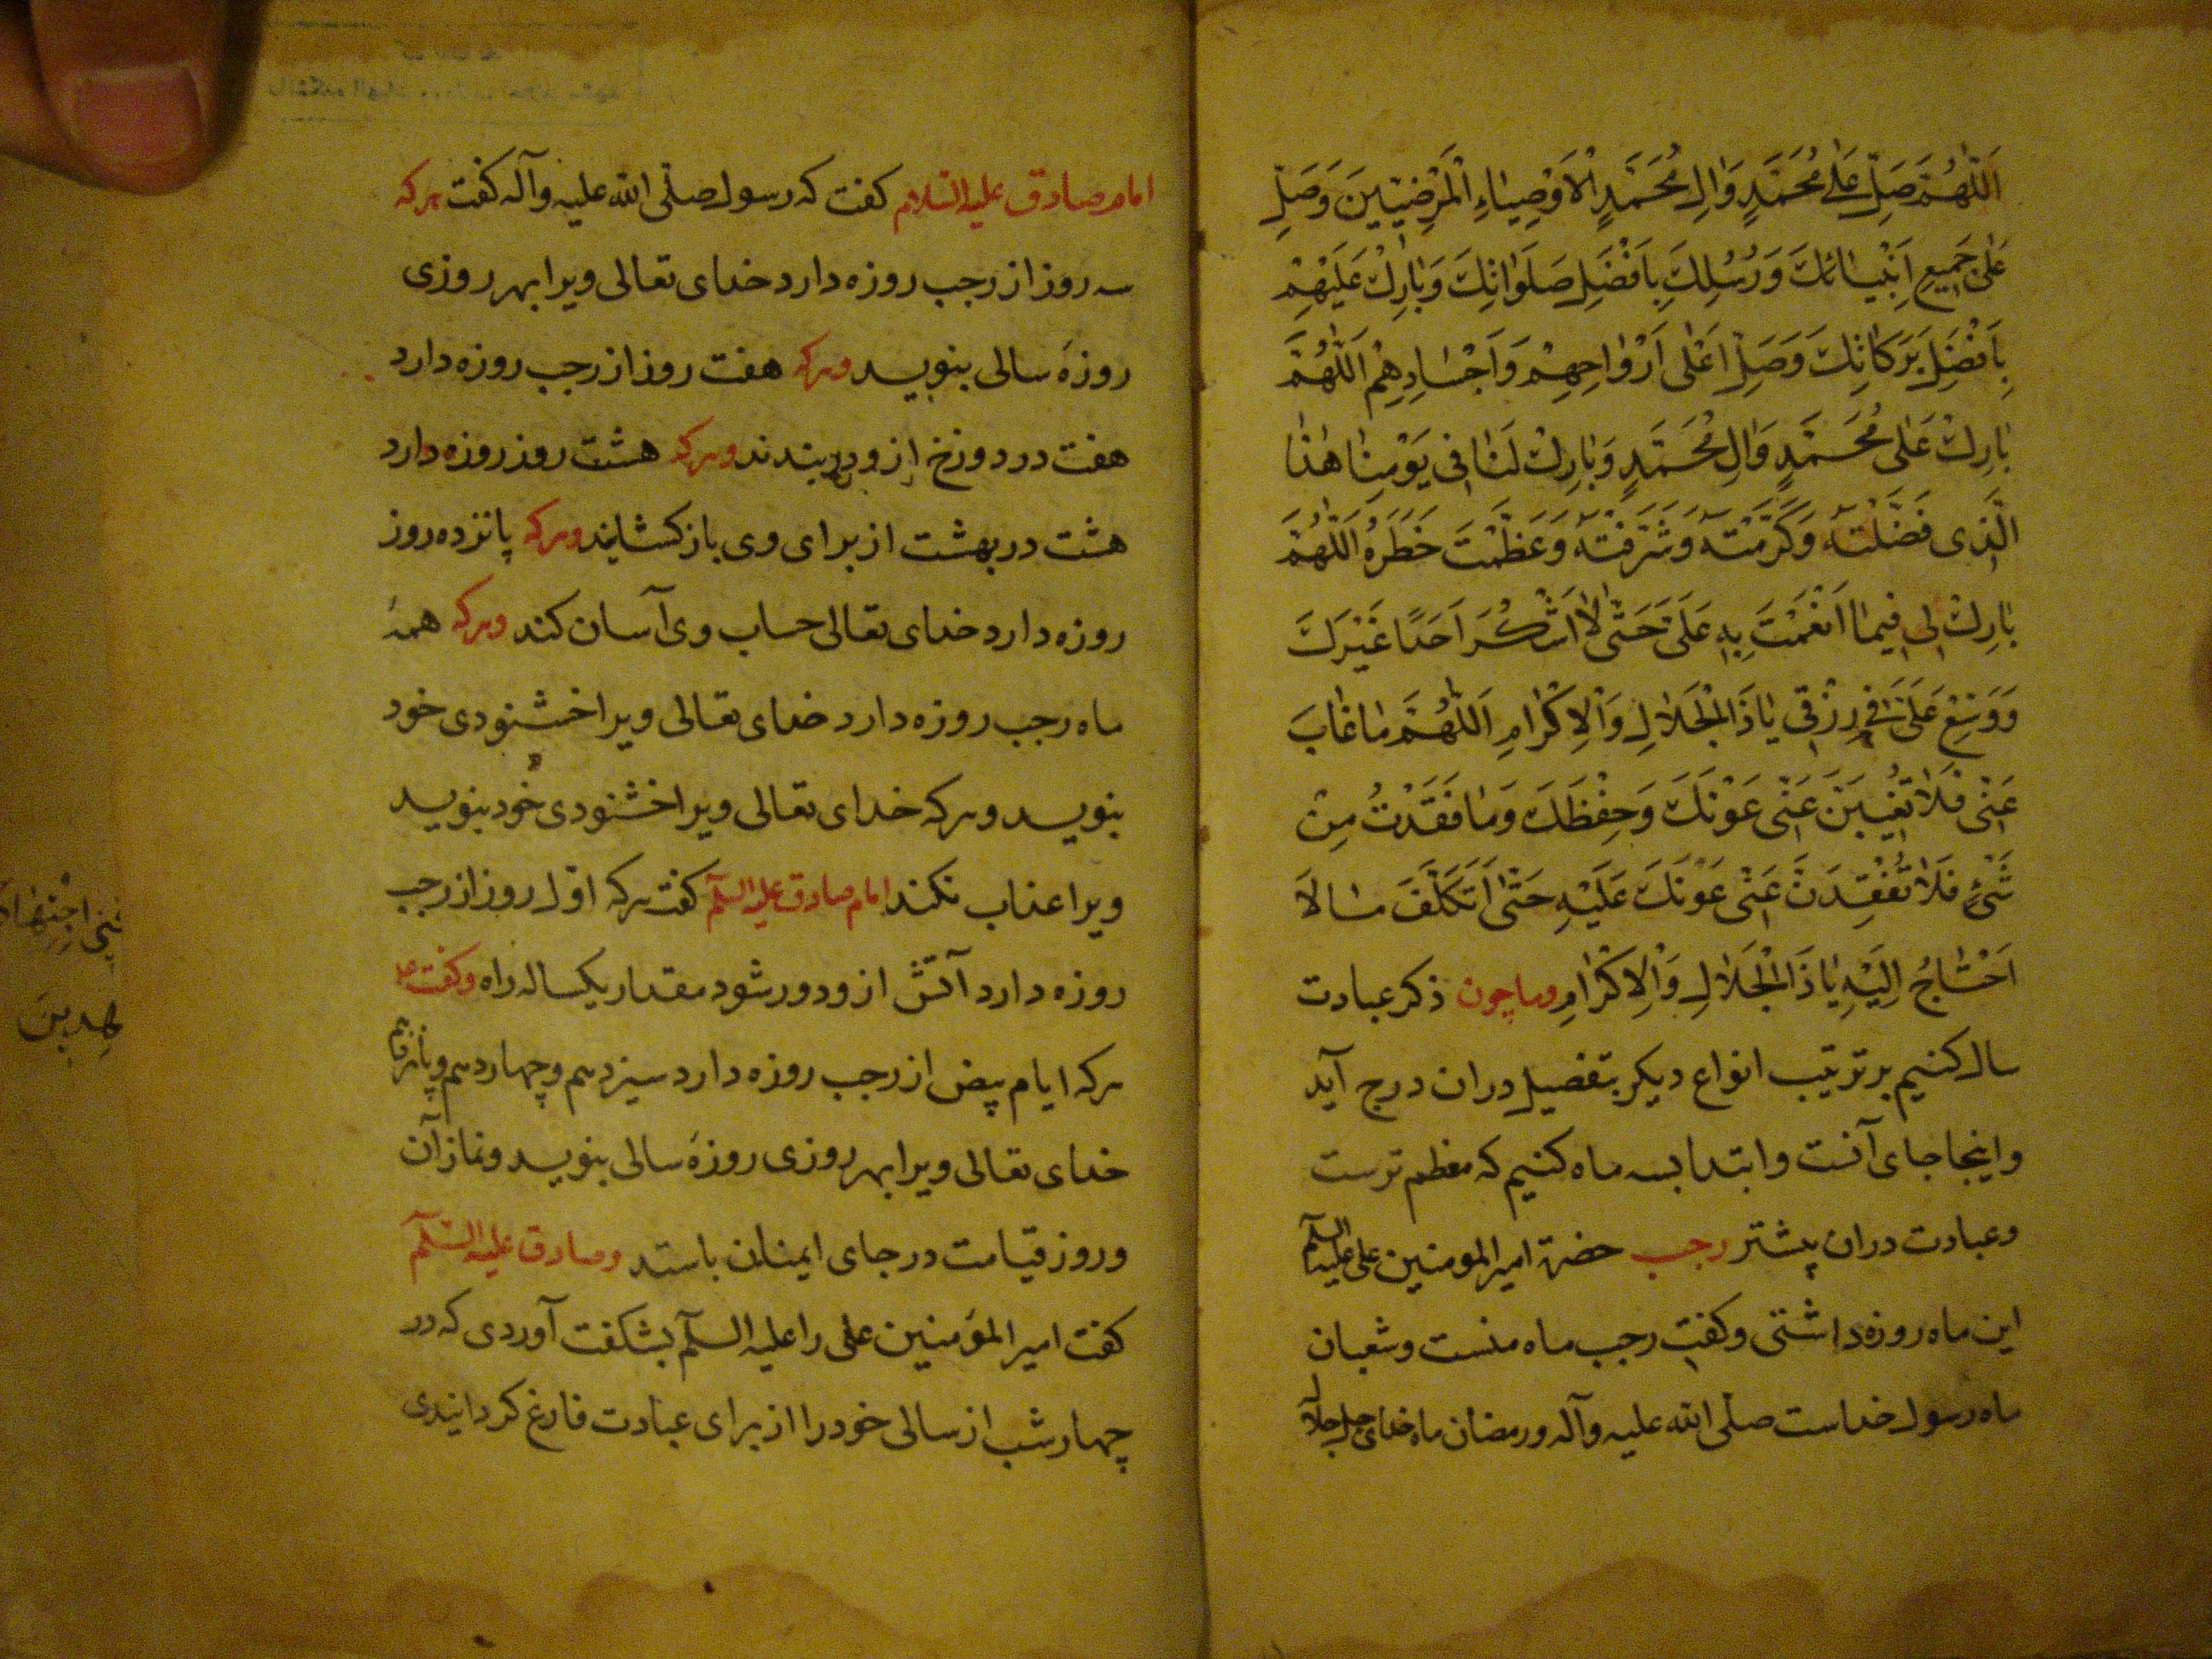 اَللّٰهُمَّ صَلِّ عَلٰى مُحَمَّدٍ وَاٰلِ مُحَمَّدٍ الْاَوْصِيٰاءِ الْمَرْضِيّينَ وَصَلِّ
عَلٰى جَميعِ اَنْبِيٰائِكَ وَرُسُلِكَ بِاَفْضَلِ صَلَوٰاتِكَ وَبٰارِكْ عَلَيْهِمْ
بِاَفْضَلِ بَرَكٰاتِكَ وَصَلِّ عَلٰى اَرْوٰاحِهِمْ وَاَجْسٰادِهِمْ اَللّٰهُمَّ
بٰارِكْ عَلٰى مُحَمَّدٍ وَاٰلِ مُحَمَّدٍ وَبٰارِكْ لَنٰا فى يَوْمِنٰا هٰذٰا
الَّذى فَضَّلْتَهُ وَكَرَّمْتَهُ وَشَرَّفْتَهُ وَعَظَّمْتَ خَطَرَهُ اَللّٰهُمَّ
بٰارِكْ لى فيمٰا اَنْعَمْتَ بِهِ عَلَىَّ حَتّٰى لاٰ اَشْكُرَ اَحَدًا غَيْرَكَ
وَوَسِّعْ عَلَىَّ فى رِزْقى يٰا ذَا الْجَلاٰلِ وَالْاِكْرٰامِ اَللّٰهُمَّ مٰا غٰابَ
عَنّى فَلاٰ تُغَيِّبَنَّ عَنّى عَوْنَكَ وَحِفْظَكَ وَمٰا فَقَدْتُ مِنْ
شَىْءٍ فَلاٰ تُفْقِدَنّ عَنّى عَوْنَكَ عَلَيْهِ حَتّٰى اَتَكَلَّفَ مٰا لاٰ
اَحْتٰاجُ اِلَيْهِ يٰا ذَا الْجَلاٰلِ وَالْاِكْرٰامِ وما چون ذكر عبادت
سال كنيم بر ترتيب انواع ديكر بتفصيل دران درج آيد
واينجا جاى آنست وابتدا بسه ماه كنيم كه معظم ترست
وعبادت دران پيشتر رجب حضرة امير المومنين على عليه السلم
اين ماه روزه داشتى وكفت رجب ماه منست وشعبان
ماه رسول خداست صلّى الله عليه وآله ورمضان ماه خداى جل جلاله
امام صادق عليه السّلام كفت كه رسول صلّى الله عليه وآله كفت هركه
سه روز از رجب روزه دارد خداى تعالى ويرا بهر روزى
روزهٔ سالى بنويسد وهركه هفت روز از رجب روزه دارد
هفت در دوزخ از و دربندند وهركه هشت روز روزه دارد
هشت در بهشت از براى وى باز كشايند وهركه پانزده روز
روزه دارد خداى تعالى حساب وى آسان كند وهركه همهٔ
ماه رجب روزه دارد خداى تعالى ويرا خشنودى خود
بنويسد وهركه خداى تعالى ويرا خشنودى خود بنويسد
ويرا عذاب نكند امام صادق عليه السلم كفت هركه اوّل روز از رجب
روزه دارد آتش از و دور شود مقدار يكساله راه وكفت
هركه ايام بيض از رجب روزه دارد سيزدهم وچهاردهم وپانزدهم
خداى تعالى ويرا بهر روزى روزهٔ سالى بنويسد ونماز آن
وروز قيامت در جاى ايمنان باستد وصادق عليه السّلم
كفت امير المؤمنين على را عليه السلم بشكفت آوردى كه در
چهار شب از سالى خود را از براى عبادت فارغ كردانيدى